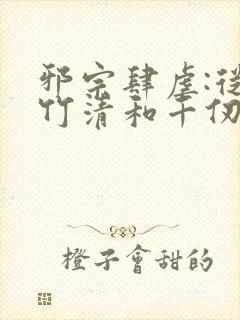 邪宗肆虐:從
竹清和千仞
橙子會甜的